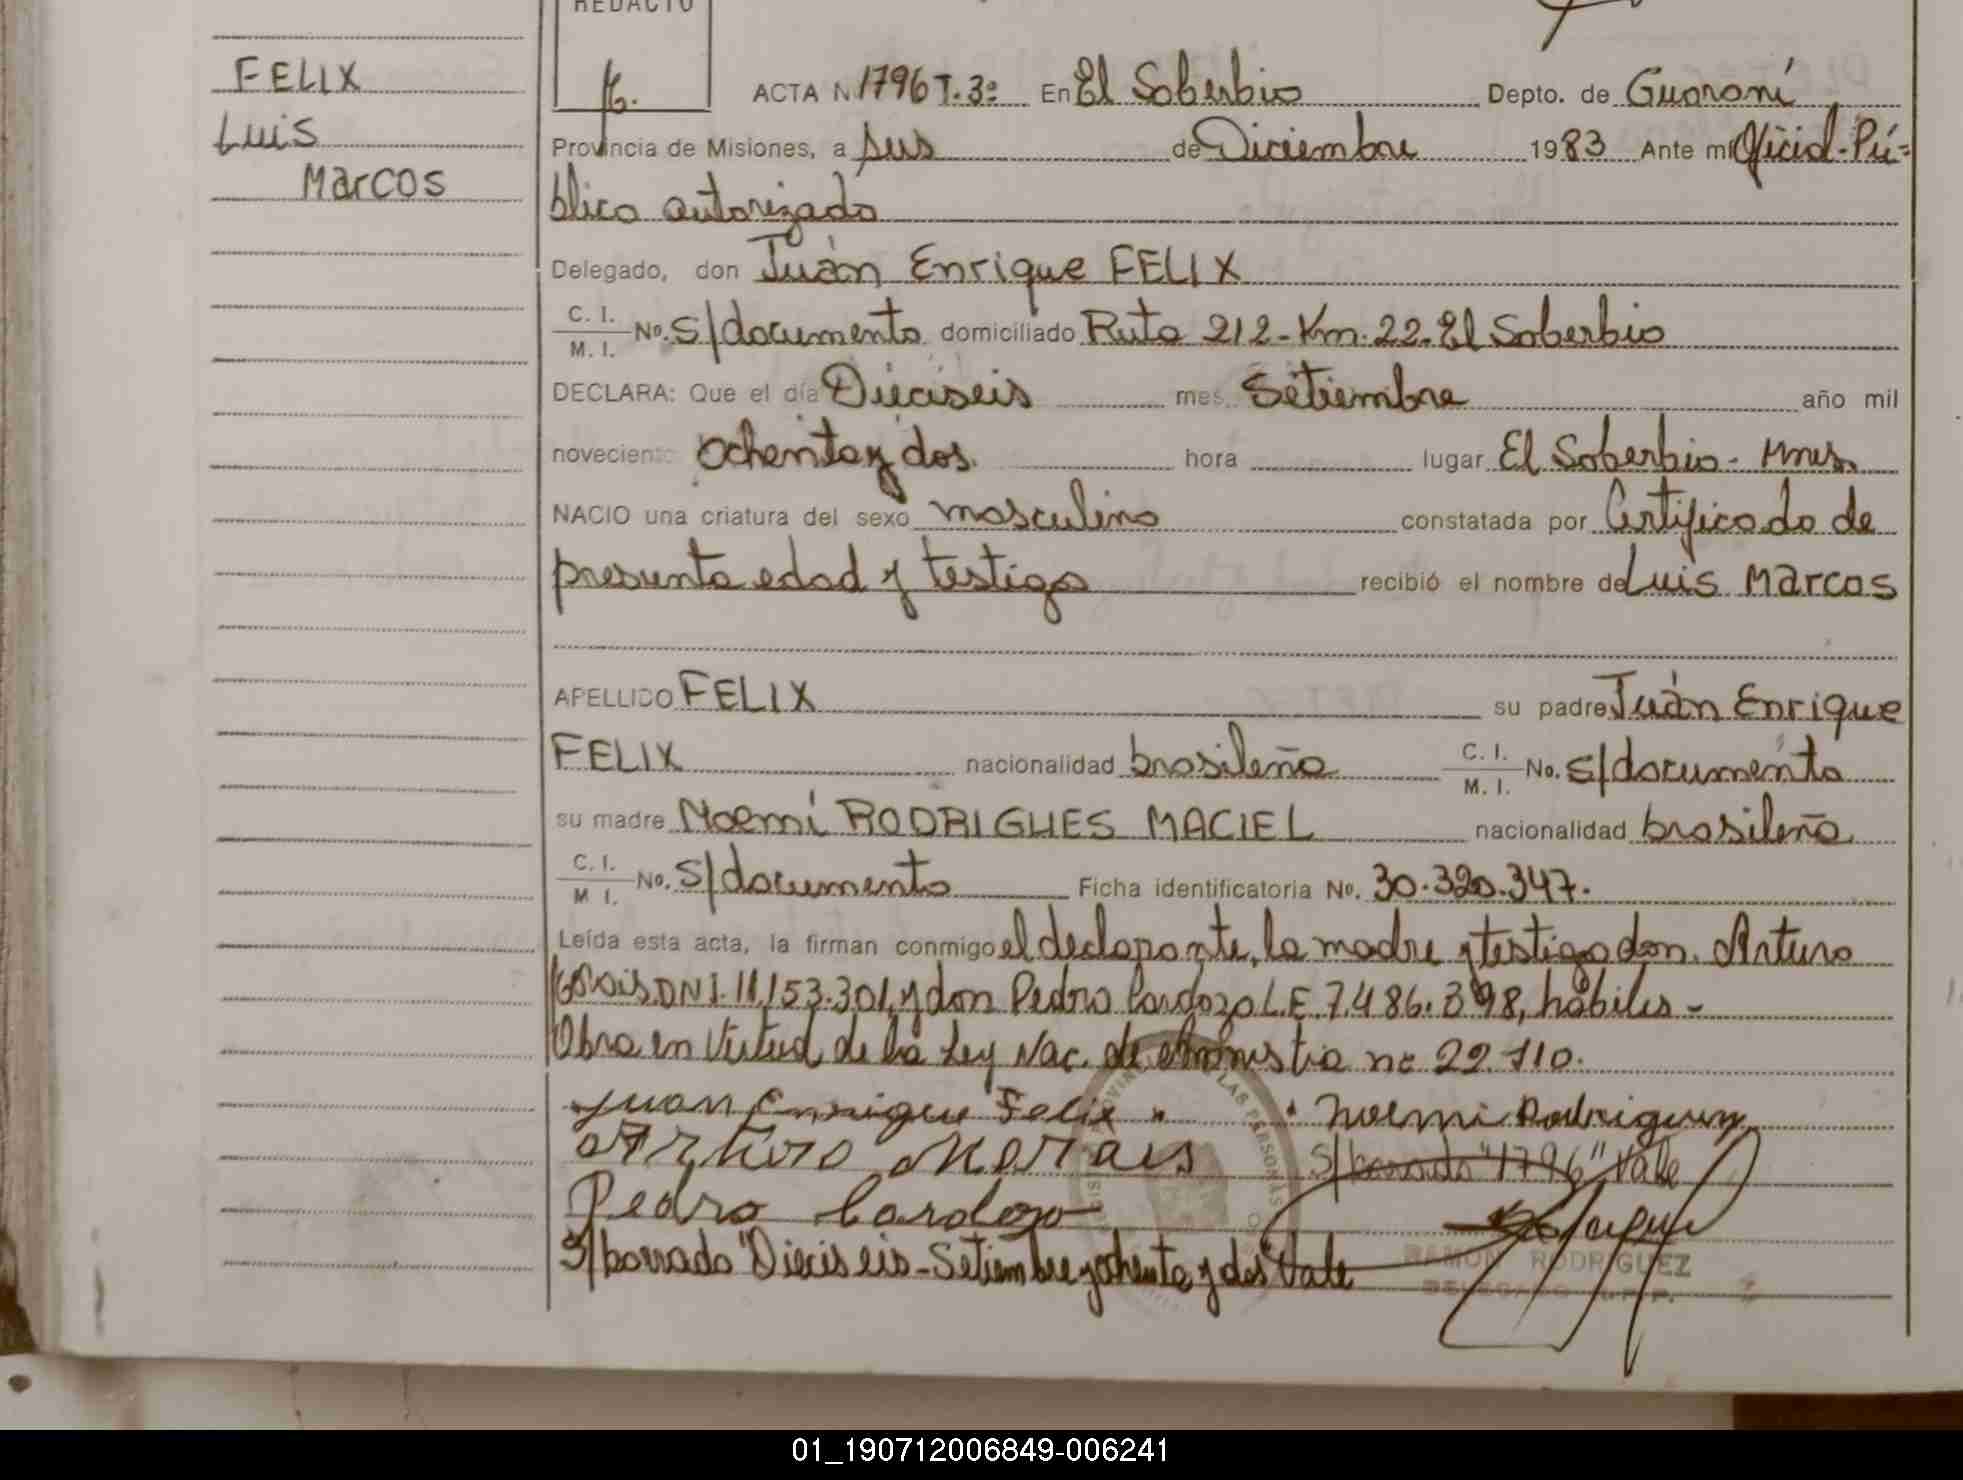 REDACTO
FELIX
Luis
Marcos
ACTA N 1796 T. 3º En El Soberbio Depto. de Guaraní
Provincia de Misiones, a seis de Diciembre 1983 Ante mi Oficial Pú-
blico autorizado
Delegado, don Juán Enrique FELIX
C. I. M. I. No. s/documento domiciliado Ruta 212-Km. 22-El Soberbio
DECLARA: Que el día Dieciseis mes Setiembre año mil
noveciento ochenta y dos. hora lugar El Soberbio - Mnes.
NACIO una criatura del sexo masculino constatada por Certificado de
presunta edad y testigo recibió el nombre de Luis Marcos
APELLIDO FELIX su padre Juán Enrique
FELIX nacionalidad brasileña C. I. M. I. No. s/documento
su madre Noemí RODRIGUES MACIEL nacionalidad brasileña
C. I. M I. No. s/documento Ficha identificatoria No. 30.320.347.
Leída esta acta, la firman conmigo el declarante, la madre y testigo don. Arturo
Morais DNI. 11,153.301, y don Pedro Cardozo L.E. 7.486.398, hábiles -
Obra en Virtud de la Ley Nac. de Amnistia nº 22.110.
Juan Enrique Felix Noemi Rodrigues
Arturo Morais S/ borrado "1796" Vale
Pedro Cardozo
S/ borrado "Dieciseis - Setiembre y ochenta y dos" Vale
RAMON RODRIGUEZ
DELEGADO R.P.P.
01_190712006849-006241